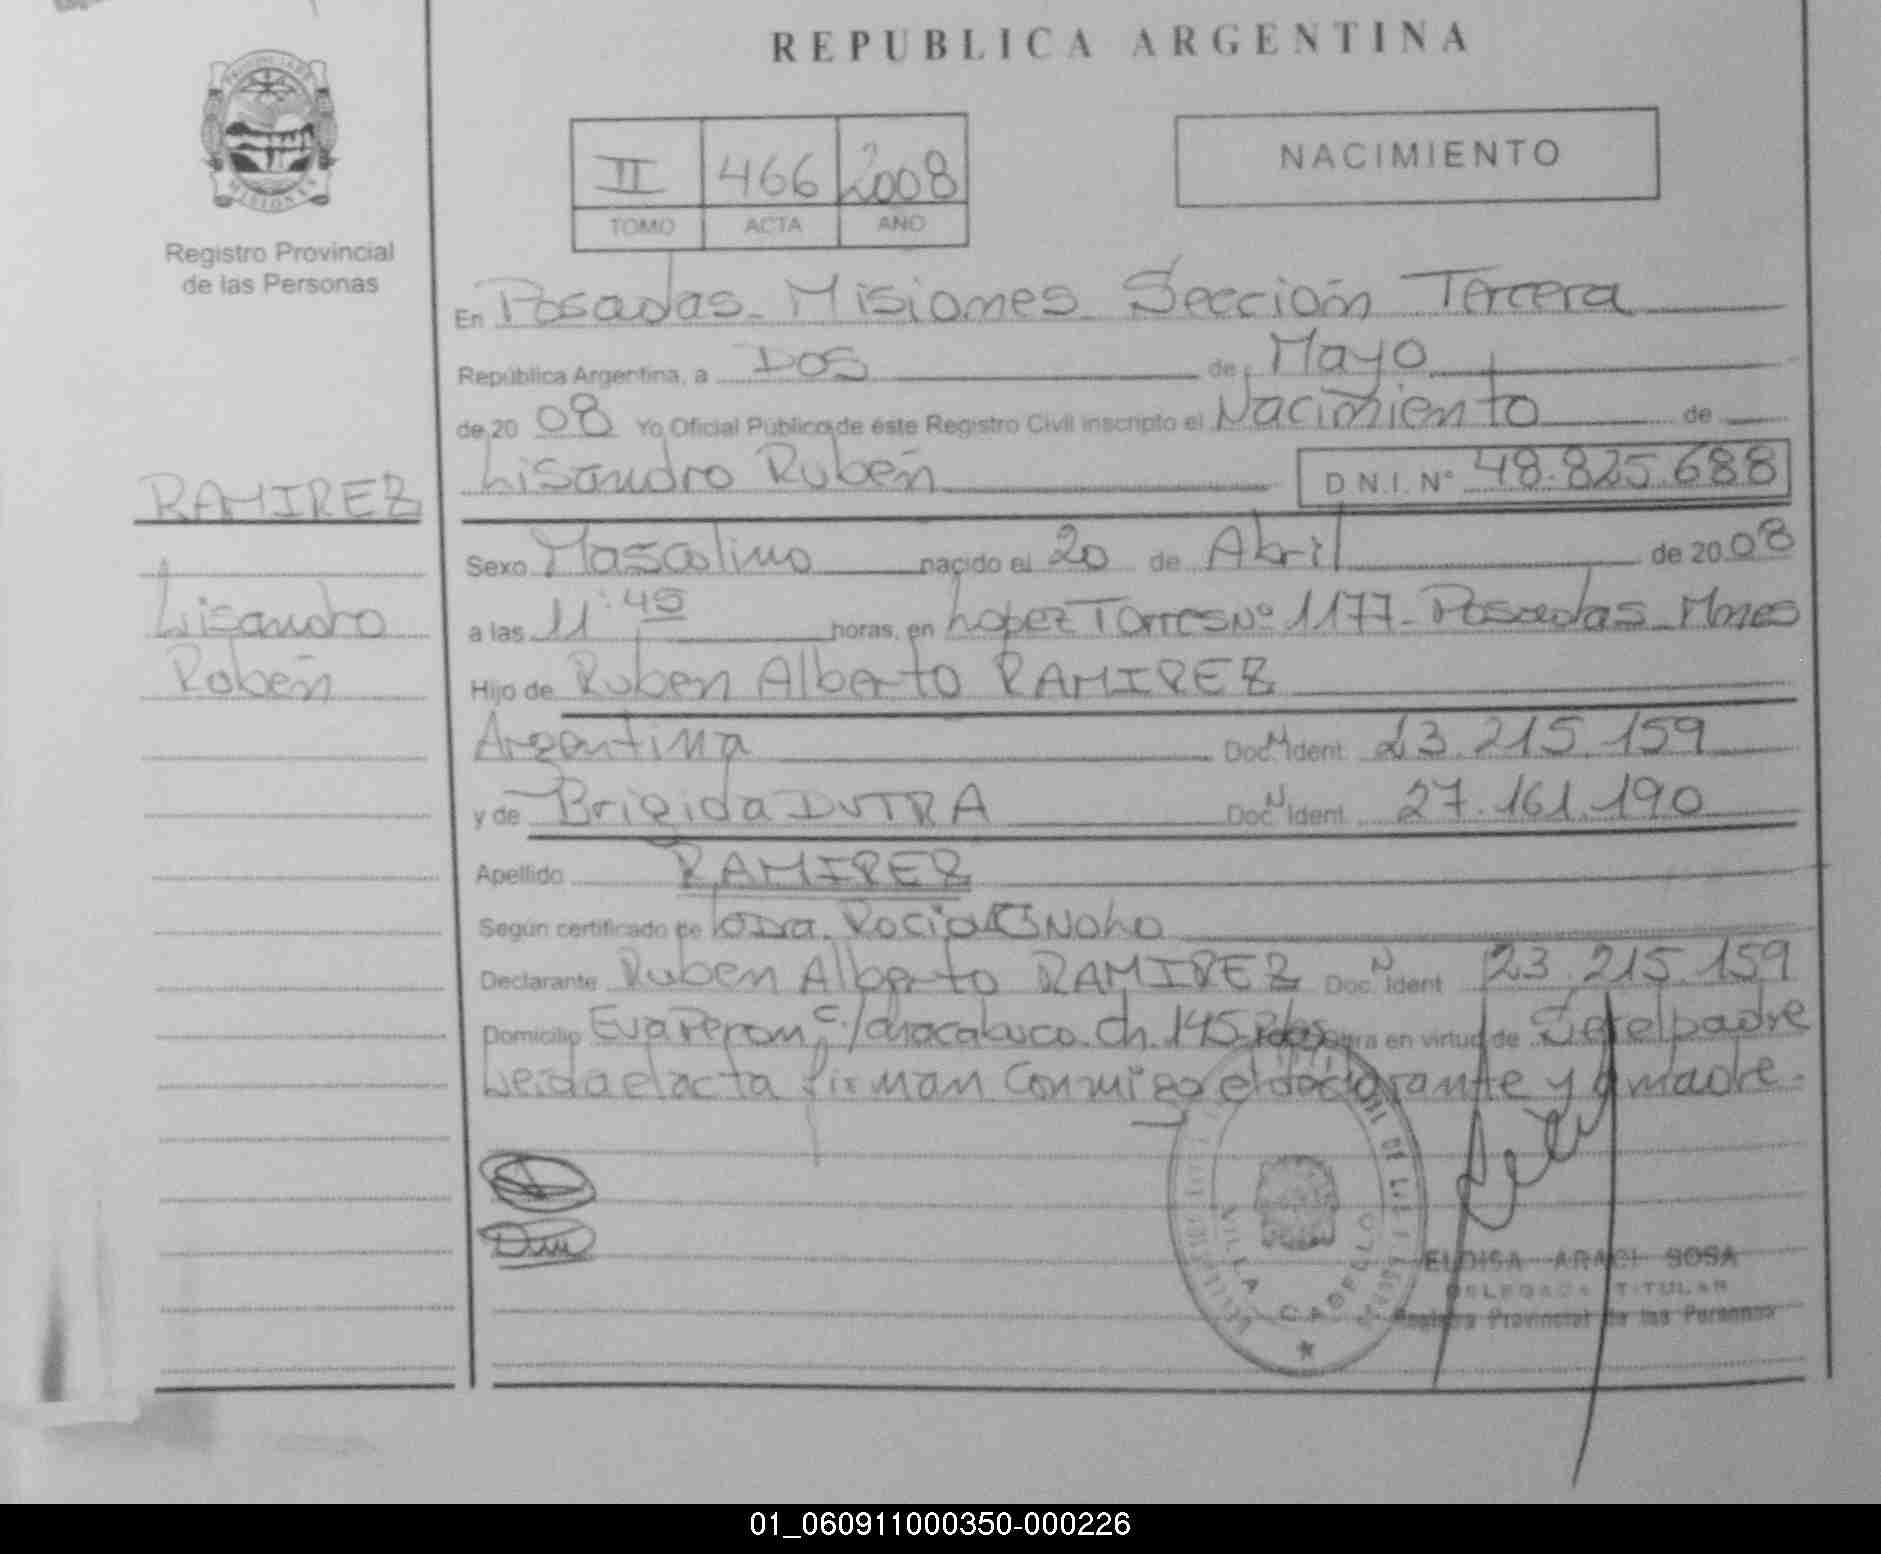 REPUBLICA ARGENTINA
PROVINCIA DE
MISIONES
Registro Provincial
de las Personas
II 466 2008
TOMO ACTA AÑO
NACIMIENTO
En Posadas - Misiones - Sección Tercera
República Argentina, a DOS de Mayo
de 20 08 Yo Oficial Público de éste Registro Civil inscripto el Nacimiento de
Lisandro Rubén D.N.I. Nº 48.825.688
RAMIREZ
Lisandro
Rubén
Sexo Masculino nacido el 20 de Abril de 20 08
a las 11:45 horas, en Lopez Torres Nº 1177 - Posadas - Mnes
Hijo de Ruben Alberto RAMIREZ
Argentina Doc. N Ident. 23.215.159
y de Brigida DUTRA Doc. N Ident. 27.161.190
Apellido RAMIREZ
Según certificado de la Dra. Rocio
Declarante Ruben Alberto RAMIREZ Doc. N Ident. 23.215.159
Domicilio Eva Peron c/ chacabuco Ch. 145 Pdas obra en virtud de Ser el padre
Leida el acta firman conmigo el declarante y la madre.
VILLA CABELLO
ELOISA ARACI SOSA
DELEGADA TITULAR
Registro Provincial de las Personas
01_060911000350-000226